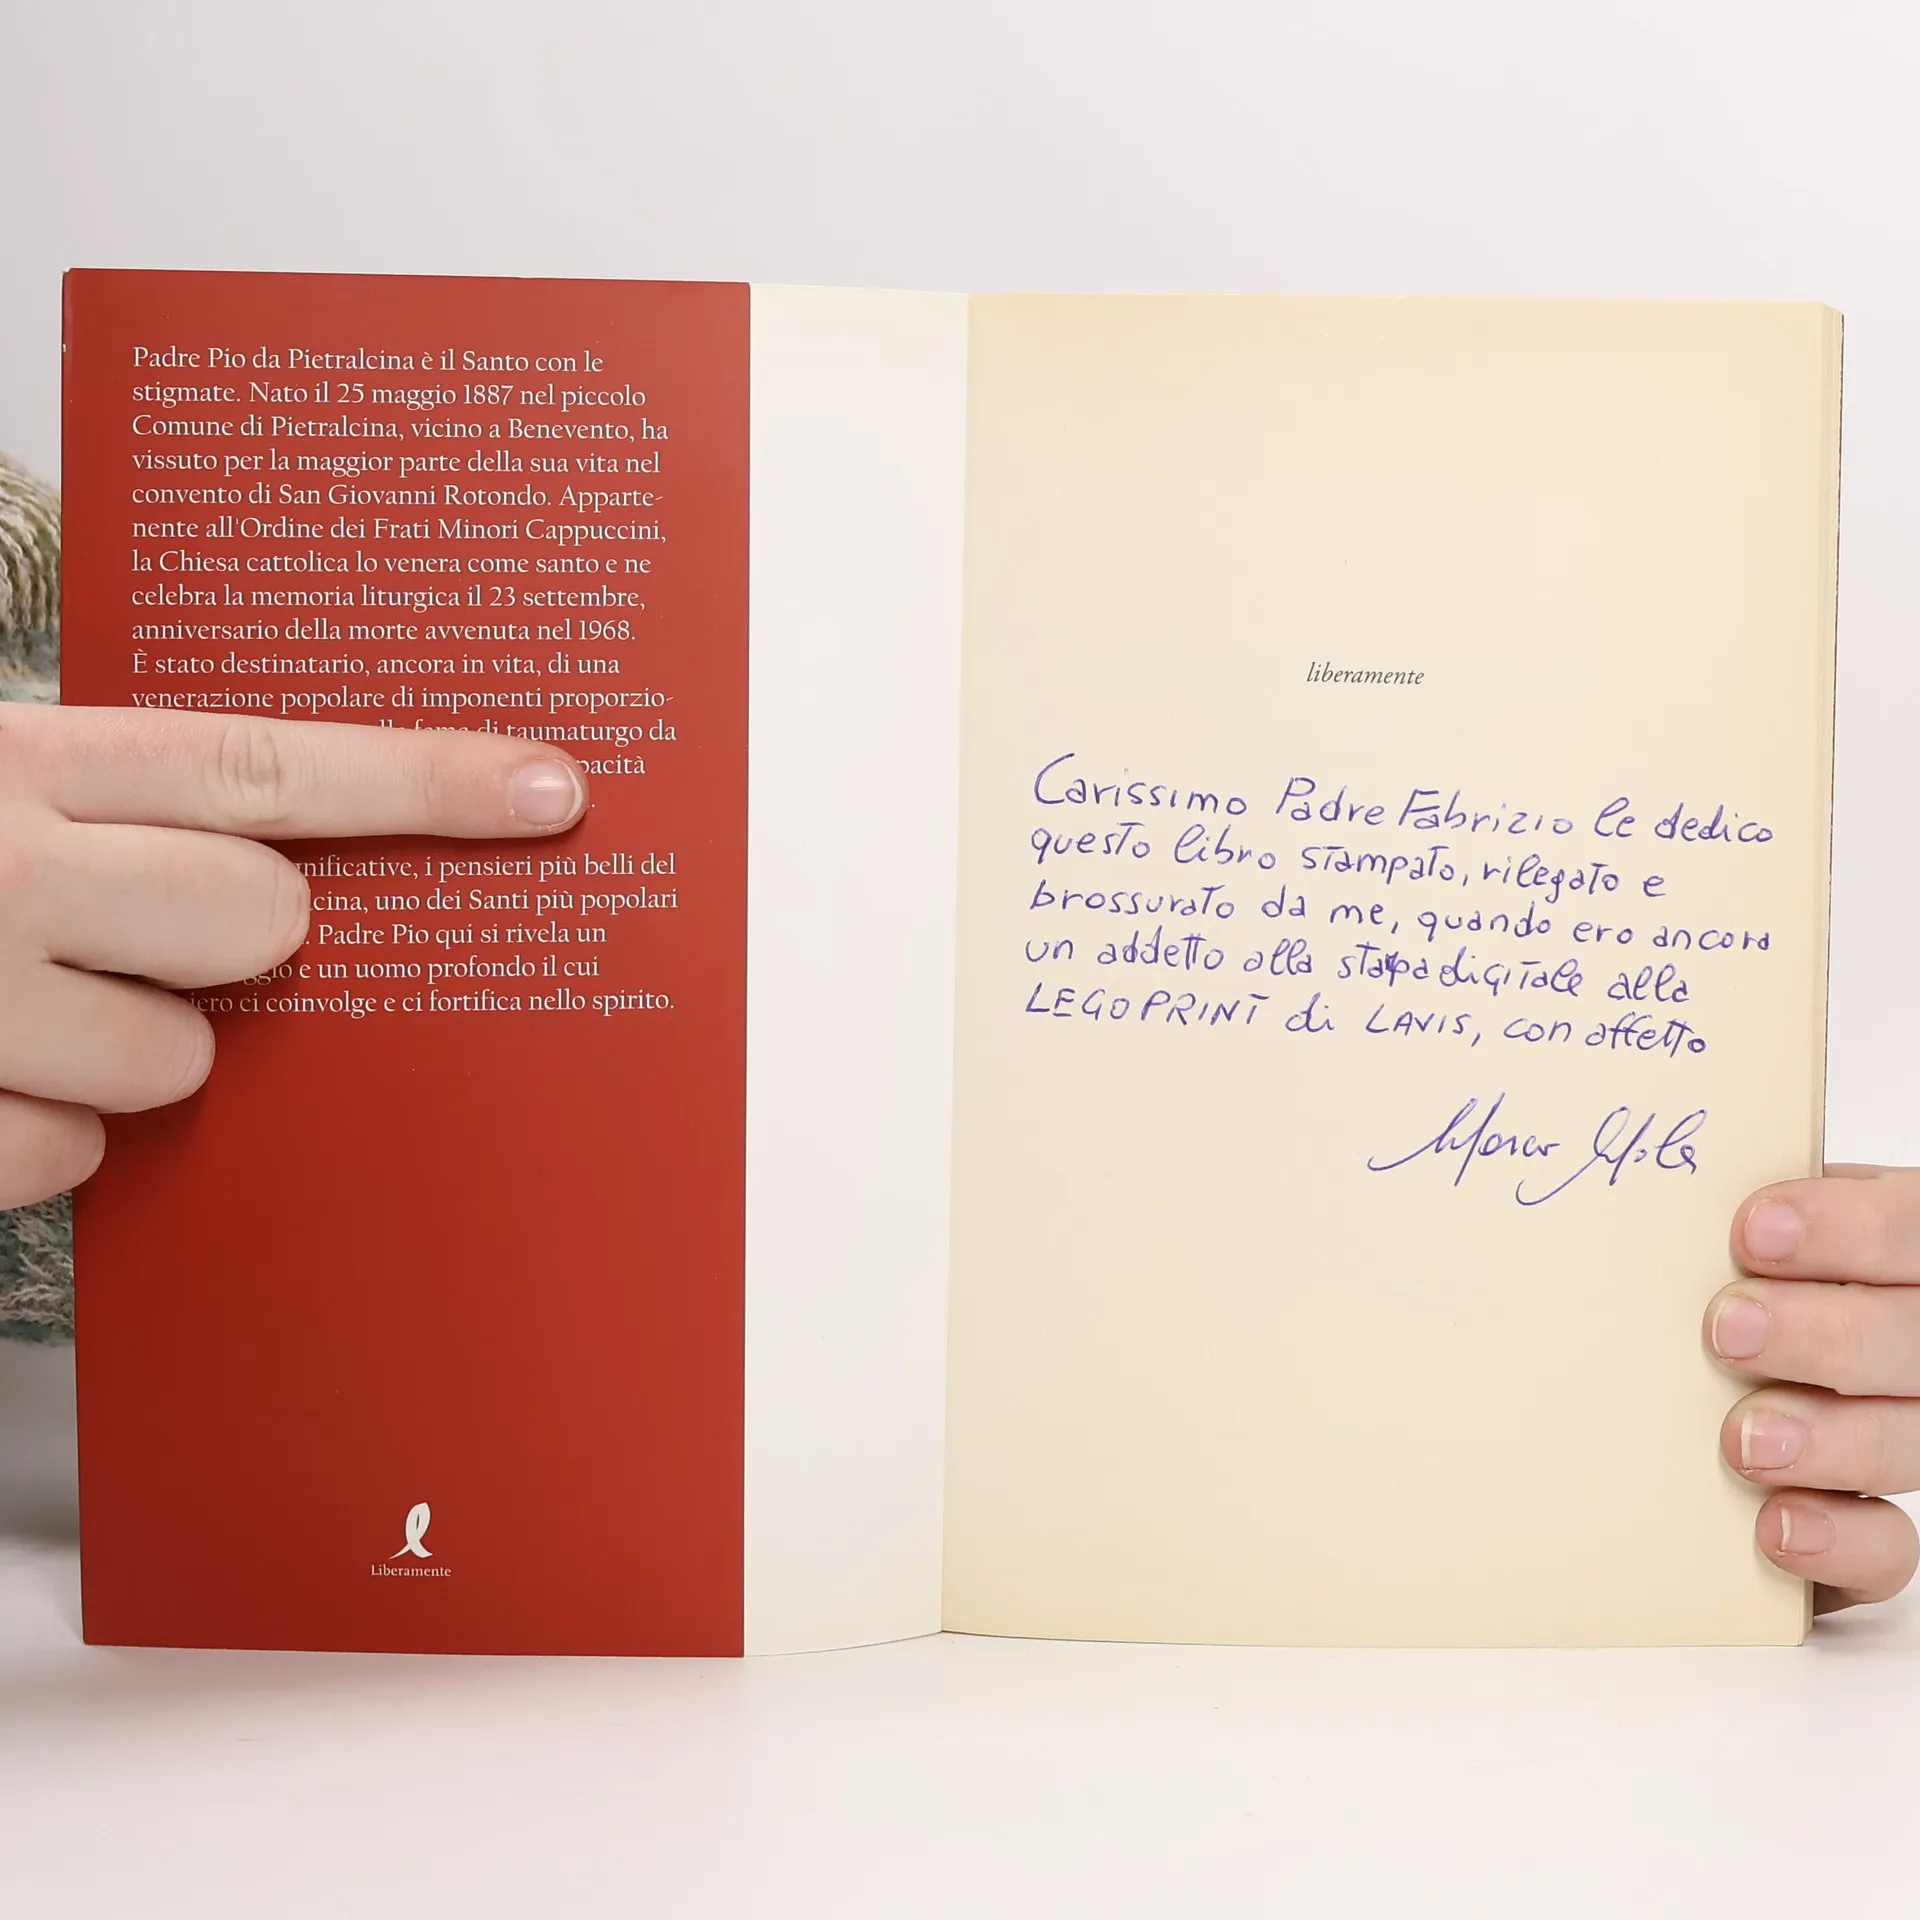 Padre Pio da Pietralcina è il Santo con le
stigmate. Nato il 25 maggio 1887 nel piccolo
Comune di Pietralcina, vicino a Benevento, ha
vissuto per la maggior parte della sua vita nel
convento di San Giovanni Rotondo. Apparte-
nente all'Ordine dei Frati Minori Cappuccini,
la Chiesa cattolica lo venera come santo e ne
celebra la memoria liturgica il 23 settembre,
anniversario della morte avvenuta nel 1968.
È stato destinatario, ancora in vita, di una
venerazione popolare di imponenti proporzio-
di taumaturgo da
i pensieri più belli del
uno dei Santi più popolari
Padre Pio qui si rivela un
e un uomo profondo il cui
ci coinvolge e ci fortifica nello spirito.
Liberamente
liberamente
Carissimo Padre Fabrizio le dedico
questo libro stampato, rilegato e
brossurato da me, quando ero ancora
un addetto alla stampa digitale alla
LEGOPRINT di LAVIS, con affetto